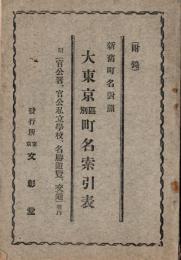 (附錄)
新舊町名對照
大東京區別町名索引表
附(官公署、官公私立學校、名勝遊覽、交通)案内
發行所 東京 文彰堂